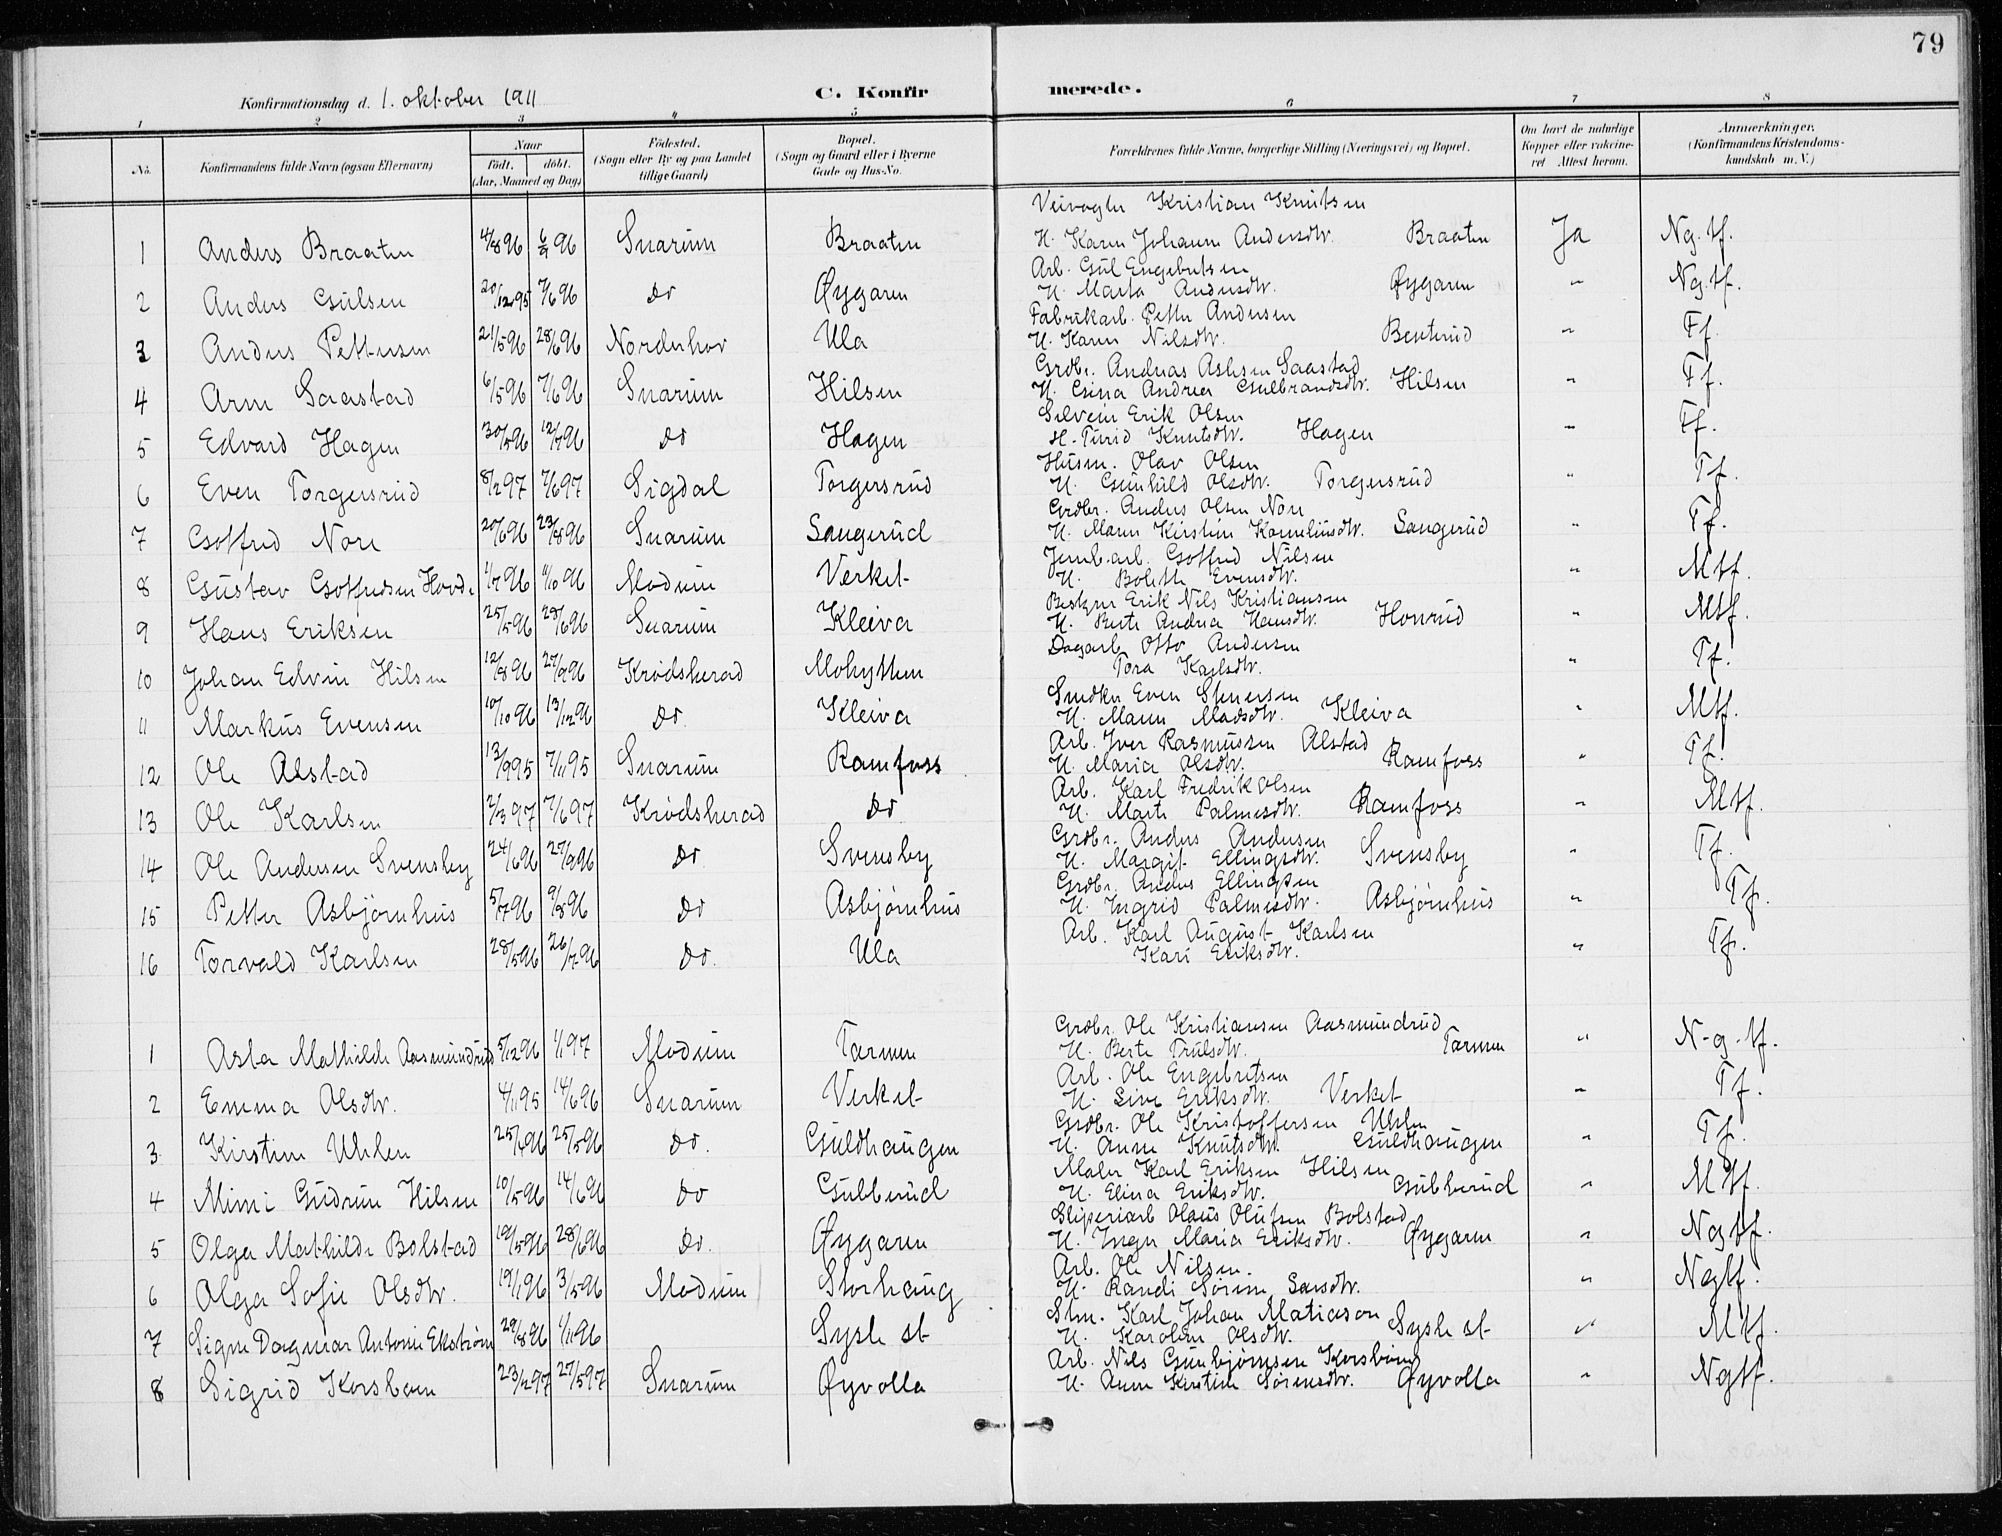 79
Konfirmationsdag d. 1. oktober 1911 C. Konfirmerede.
1 2 3 4 5 6 7 8
No. Konfirmandens fulde Navn (ogsaa Efternavn) Naar født. døbt. (Aar, Maaned og Dag) Fødested. (Sogn eller By og paa Landet tillige Gaard) Bopæl. (Sogn og Gaard eller i Byerne Gade og Hus-No. Forældrenes fulde Navne, borgerlige Stilling (Næringsvei) og Bopæl. Om havt de naturlige Kopper eller vaccineret Attest herom. Anmærkninger. (Konfirmandens Kristendomskundskab m. V.)
Veivogter Kristian Knutsen
1 Anders Braaten 4/8 96 96 Snarum Braaten H. Karen Johanne Andersdtr. Braaten Ja Ng. tf.
Arb. Gul Engebretsen
2 Anders Gulsen 20/12 95 7/6 96 Do Øygaren H. Marta Andersdtr. Øygaren " Ng. tf.
Fabrikarb. Petter Andersen
3 Anders Pettersen 21/5 96 28/6 96 Norderhov Ula H. Karen Nilsdtr. Benterud " Tf.
Grdbr. Andreas Aslesen Saastad
4 Arne Saastad 6/5 96 7/6 96 Snarum Hilsen H. Gina Andrea Gulbrandsdtr. Hilsen " Tf.
Selveier Erik Olsen
5 Edvard Hagen 30/5 96 12/7 96 Do Hagen H. Turid Knutsdtr. Hagen " Tf.
Husm. Olav Olsen
6 Even Torgersrud 8/2 97 7/6 97 Sigdal Torgersrud H. Gunhild Olsdtr. Torgersrud " Tf.
Grdbr. Anders Olsen Nore
7 Gotfred Nore 20/6 96 23/8 96 Snarum Sangerud H. Maren Kirstine Korneliusdtr. Sangerud " Tf.
Jernb.arb. Gotfred Nilsen
8 Gustav Gotfredsen Hovde 1/7 96 11/10 96 Modum Verket H. Bolette Evensdtr. " Mtf.
Bestyrer Erik Nils Kristiansen
9 Hans Eriksen 25/5 96 28/6 96 Snarum Kleiva H. Berte Andrea Hansdtr. Honrud " Mtf.
Dagarb Otto Andersen
10 Johan Edvin Hilsen 12/8 96 27/9 96 Krødsherad Mohytten Tora Karlsdtr. " Tf.
Snedker Even Stenersen
11 Markus Evensen 10/10 96 13/12 96 Do. Kleiva H. Maren Madsdtr. Kleiva " Mtf.
Arb. Iver Rasmussen Alstad
12 Ole Alstad 13/9 95 7/11 95 Snarum Ramfoss H. Maria Olsdtr. Ramfoss " Tf.
Arb. Karl Fredrik Olsen
13 Ole Karlsen 2/3 97 7/6 97 Krødsherad Do H. Marte Palmesdtr. Ramfoss " Mtf.
Grdbr. Anders Andersen
14 Ole Andersen Svensby 24/6 96 27/9 96 Do Svensby H. Margit Ellingsdtr. Svensby " Tf.
Grdbr. Anders Ellingsen
15 Petter Asbjørnhus 5/7 96 9/8 96 Do Asbjørnhus H. Ingrid Palmesdtr. Asbjørnhus " Tf.
Arb. Karl August Karlsen
16 Torvald Karlsen 28/5 96 26/7 96 Do. Ula Kari Eriksdtr. " Tf.
Grdbr. Ole Kristiansen Aasmundrud
1 Asta Mathilde Aasmundrud 5/12 96 1/1 97 Modum Tarmen H. Berte Trulsdtr. Tarmen " N-g. tf.
Arb. Ole Engebretsen
2 Emma Olsdtr. 4/11 95 14/6 96 Snarum Verket H. Live Eriksdtr. Verket " Tf.
Grdbr. Ole Kristoffersen Uhlen
3 Kirstine Uhlen 25/4 96 25/5 96 Do. Guldhaugen H. Anne Knutsdtr. Guldhaugen " Tf.
Maler Karl Eriksen Hilsen
4 Mimi Gudrun Hilsen 10/5 96 14/6 96 Do Gubberud H. Elina Eriksdtr. Gubberud " Mtf.
Sliperiarb Olaus Olufsen Bolstad
5 Olga Mathilde Bolstad 19/5 96 28/6 96 Do. Øygaren H. Inger Maria Eriksdtr. Øygaren " Ngtf.
Arb. Ole Nilsen.
6 Olga Sofie Olsdtr. 19/1 96 3/5 96 Modum Storhaug H. Randi Sørine Larsdtr. " Ngtf.
Stm. Karl Johan Matiason
7 Signe Dagmar Antonie Ekstrøm 29/8 96 1/11 96 Sysle st H. Karoline Olsdtr. Sysle st " Mtf.
Arb. Nils Gunbjørnsen Korsbøen
8 Sigrid Korsbøen 23/2 97 27/5 97 Snarum Øyvolla H. Anne Kirstine Sørensdtr. Øyvolla " Ngtf.